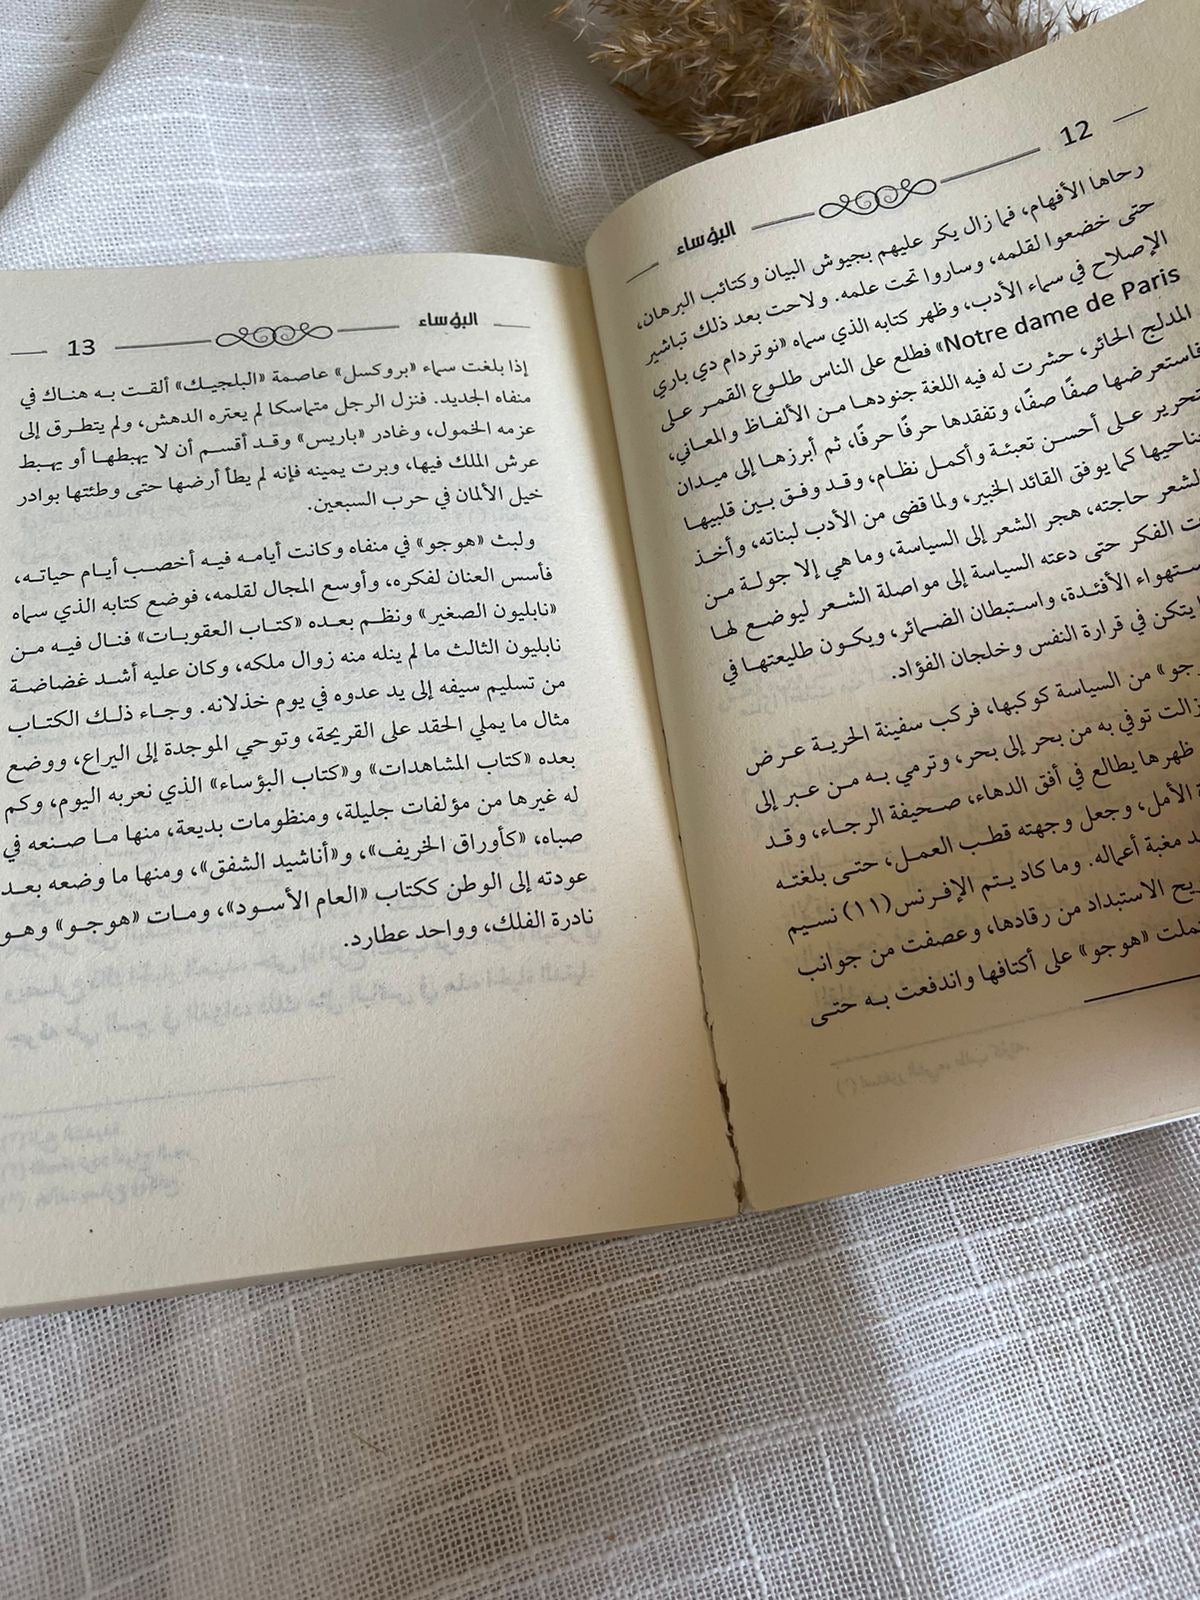 12
البؤساء
رحاها الأفهام، فما زال يكر عليهم بجيوش البيان وكتائب البرهان،
حتى خضعوا لقلمه، وساروا تحت علمه. ولاحت بعد ذلك تباشير
الإصلاح في سماء الأدب، وظهر كتابه الذي سماه «نوتردام دي باري
Notre dame de Paris» فطلع على الناس طلوع القمر على
المدلج الحائر، حشرت له فيه اللغة جنودها من الألفاظ والمعاني،
فاستعرضها صفًا صفًا، وتفقدها حرفًا حرفًا، ثم أبرزها إلى ميدان
على أحسن تعبئة وأكمل نظام، وقد وفق بين قلبيها
كما يوفق القائد الخبير، ولما قضى من الأدب لبناته، وأخذ
حاجته، هجر الشعر إلى السياسة، وما هي إلا جولة من
الفكر حتى دعته السياسة إلى مواصلة الشعر ليوضع لها
الأفئدة، واستبطان الضمائر، ويكون طليعتها في
يتكن في قرارة النفس وخلجان الفؤاد.
من السياسة كوكبها، فركب سفينة الحرية عرض
زالت توفي به من بحر إلى بحر، وترمي به من عبر إلى
ظهرها يطالع في أفق الدهاء، صحيفة الرجاء، وقد
الأمل، وجعل وجهته قطب العمل، حتى بلغته
مغبة أعماله. وما كاد يتم الإفرنس(١١) نسيم
الاستبداد من رقادها، وعصفت من جوانب
«هوجو» على أكتافها واندفعت به حتى
البؤساء
13
إذا بلغت سماء «بروكسل» عاصمة «البلجيك» ألقت به هناك في
منفاه الجديد. فنزل الرجل متماسكا لم يعتره الدهش، ولم يتطرق إلى
عزمه الخمول، وغادر «باريس» وقد أقسم أن لا يهبطها أو يهبط
عرش الملك فيها، وبرت يمينه فإنه لم يطأ أرضها حتى وطئتها بوادر
خيل الألمان في حرب السبعين.
ولبث «هوجو» في منفاه وكانت أيامه فيه أخصب أيام حياته،
فأسس العنان لفكره، وأوسع المجال لقلمه، فوضع كتابه الذي سماه
«نابليون الصغير» ونظم بعده «كتاب العقوبات» فنال فيه من
نابليون الثالث ما لم ينله منه زوال ملكه، وكان عليه أشد غضاضة
من تسليم سيفه إلى يد عدوه في يوم خذلانه. وجاء ذلك الكتاب
مثال ما يملي الحقد على القريحة، وتوحي الموجدة إلى اليراع، ووضع
بعده «كتاب المشاهدات» و«كتاب البؤساء» الذي نعربه اليوم، وكم
له غيرها من مؤلفات جليلة، ومنظومات بديعة، منها ما صنعه في
صباه، «كأوراق الخريف»، و«أناشيد الشفق»، ومنها ما وضعه بعد
عودته إلى الوطن ككتاب «العام الأسود»، ومات «هوجو» وهو
نادرة الفلك، وواحد عطارد.